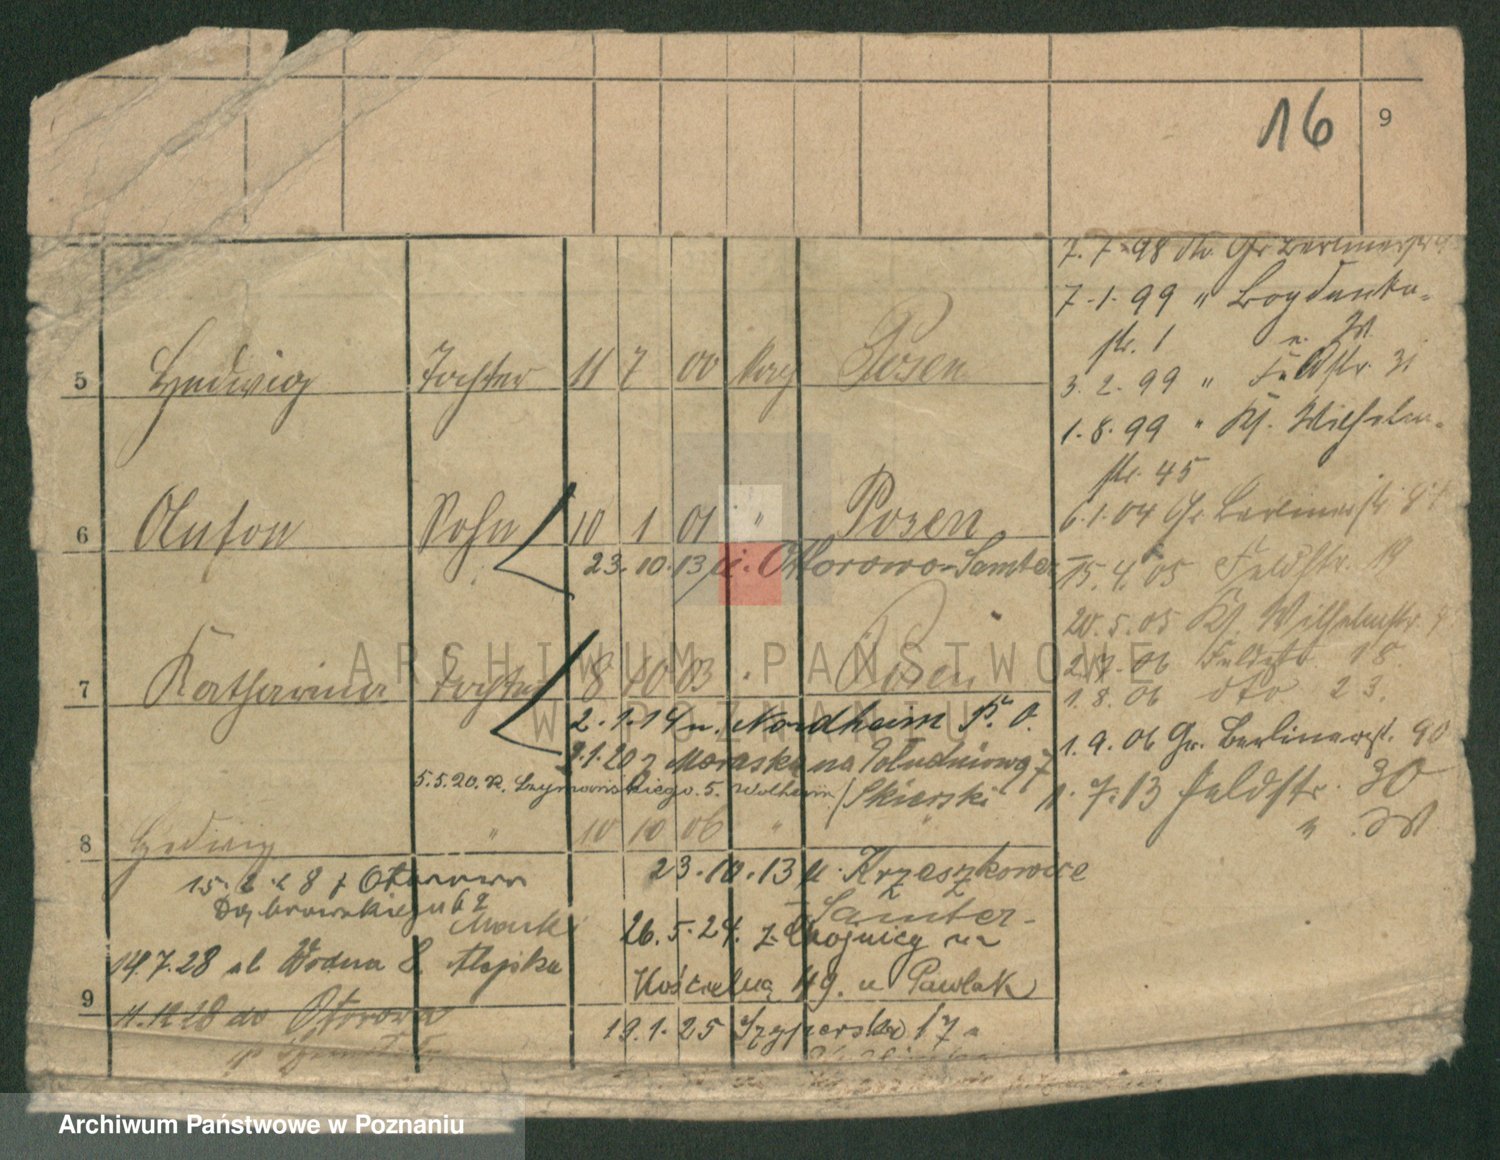 16
9
7. 7. 98 dto. Gr. Berlinerstr.
7. 1. 99 " Bogdanka-
str. 1
3. 2. 99 " Feldstr. 31
1. 8. 99 " Kl. Wilhelm-
str. 45
6. 1. 04 Gr. Berlinerstr.
15. 4. 05 Feldstr. 19
20. 5. 05 Kl. Wilhelmstr.
06 Feldstr. 18.
1. 8. 06 dto 23.
1. 9. 06 Gr. Berlinerst. 90
1. 7. 13 Feldstr. 30
5 Hedwig Tochter 11 7 00 Posen
6 Anton Sohn 10 1 01 " Posen
23. 10. 13 Ottorowo-Samter
7 Katharina Tochter 8 10 03 Posen
2. 1. 14 n. Nordheim
1. 20 z Moraska na Południową 7
5. 5. 20. Szymańskiego 5. Wolheim / Skierski
8 Hedwig " 10 10 06 " "
23. 10. 13 n. Krzeszkowice
Samter
26. 5. 24. z Chojnicy na
Kościelną 49. u Pawlak
19. 1. 25 Szyperska 17
15. 2. 28 z Otorowa
Dąbrowskiego 62
14. 7. 28 ab Wodna 8.
9
28 do Otorowa
ARCHIWUM PAŃSTWOWE
W POZNANIU
Archiwum Państwowe w Poznaniu